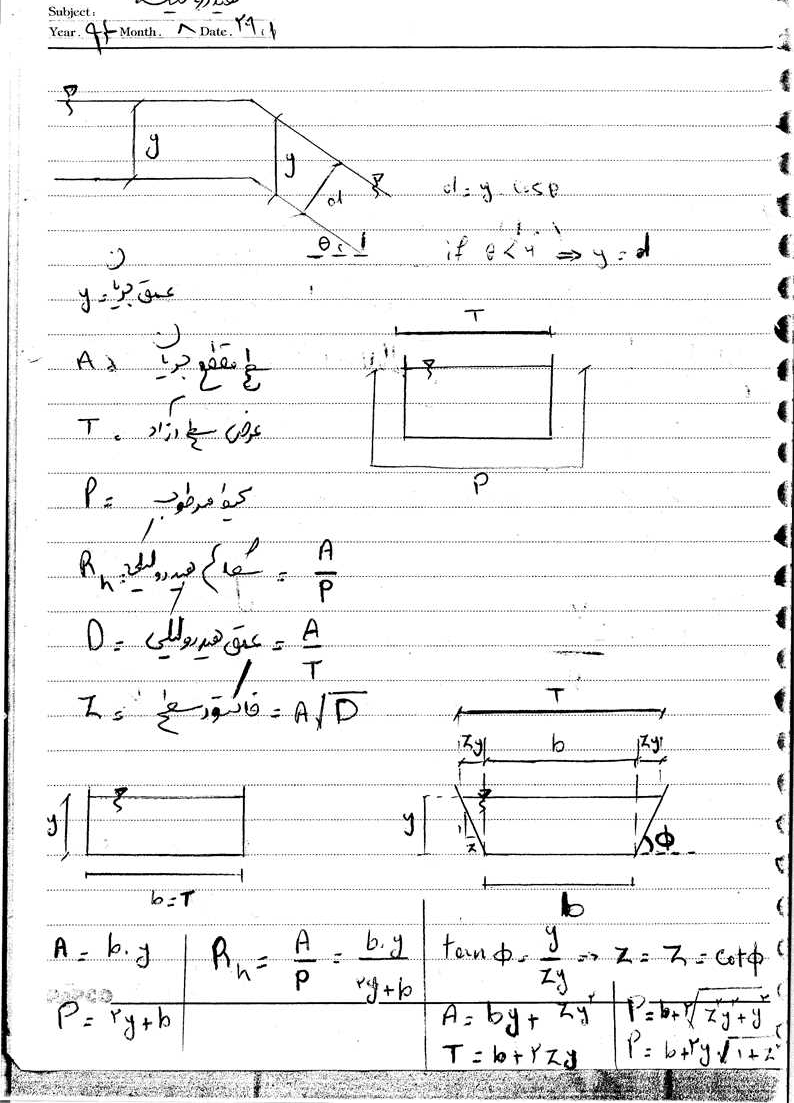 Subject:
Year. ۹۴ Month. ۸ Date. ۲۹
y
y
d
θ
d = y cosθ
if θ < ⇒ y = d
y = عمق جریان
A = سطح مقطع جریان
T
T = عرض سطح آزاد
P
P = محیط مرطوب
Rh = شعاع هیدرولیکی = A/P
D = عمق هیدرولیکی = A/T
Z = فاکتور سطح = A√D
T
zy b zy
y
y
1
z
Φ
b=T
b
A = b.y
Rh = A/P = b.y/۲y+b
tan Φ = y/zy ⇒ z = z = cotΦ
P = ۲y+b
A = by + zy²
P = b+۲√z²y²+y²
T = b+۲zy
P = b+۲y√1+z²